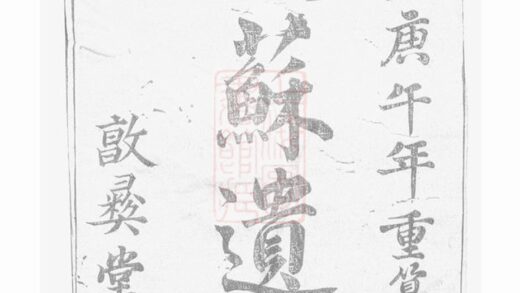 庚午年重
蘇遺
敦彝堂